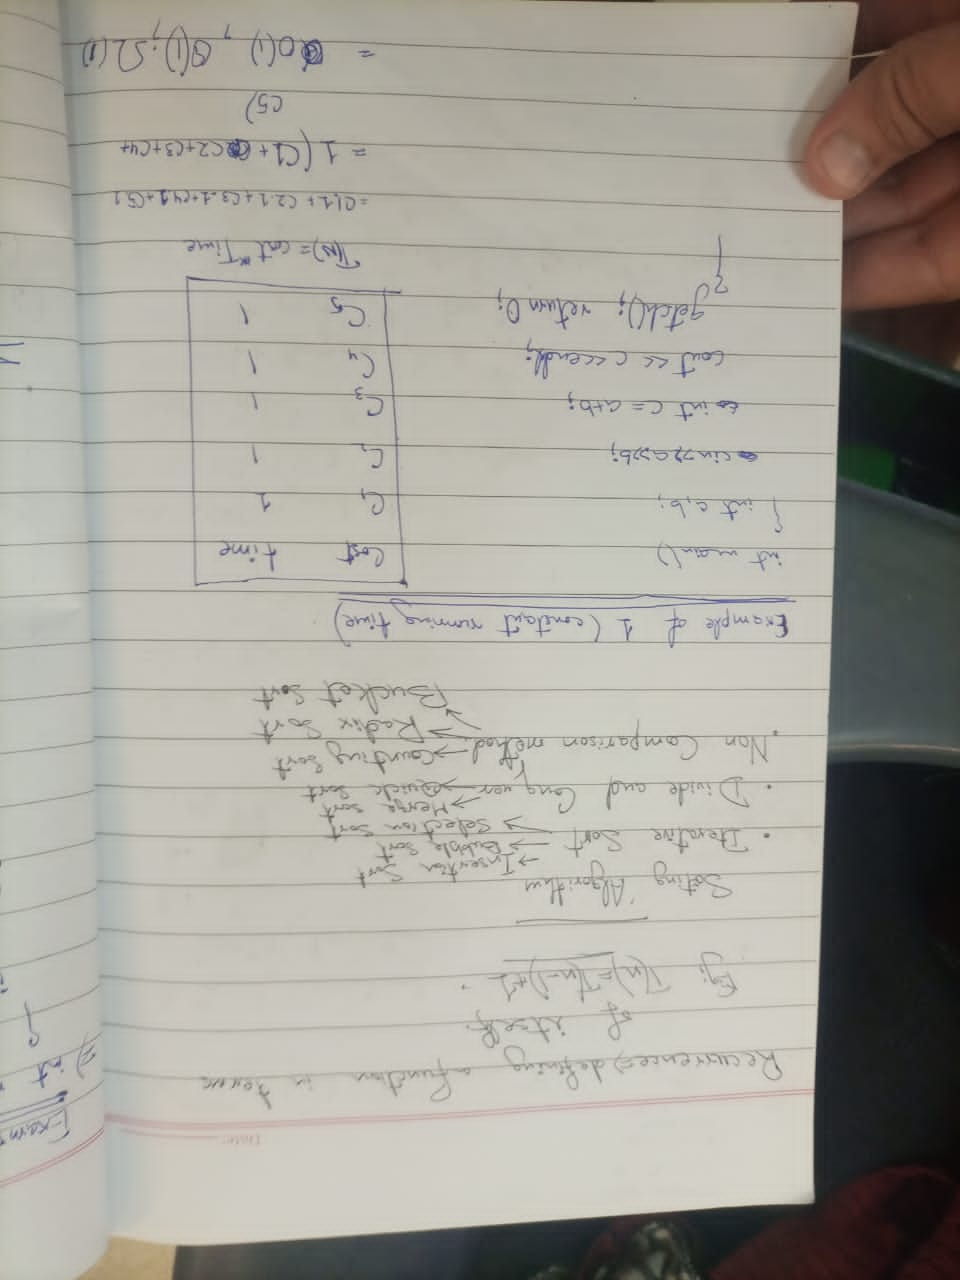 Date:
Recurrence => defining a function in term
of itself.
Eg: T(n)=T(n-1)+1
Soting Algorithm
• Iterative Sort → Insertion Sort
→ Bubble Sort
→ Selection Sort
• Divide and Conquer → Merge Sort
→ Quick Sort
• Non Comparison method → Counting Sort
→ Radix Sort
→ Bucket Sort
Example of 1 (constant running time)
int main() Cost time
{ int a,b; C1 1
cin>>a>>b; C2 1
int c = a+b; C3 1
cout << c<<endl; C4 1
getch(); return 0; C5 1
}
T(N) = cost * Time
= C1.1 + C2.1 + C3.1 + C4.1 + C5.1
= 1 (C1 + C2+C3+C4+
C5)
= O(1), θ(1), Ω(1)
Exam
=) int
{